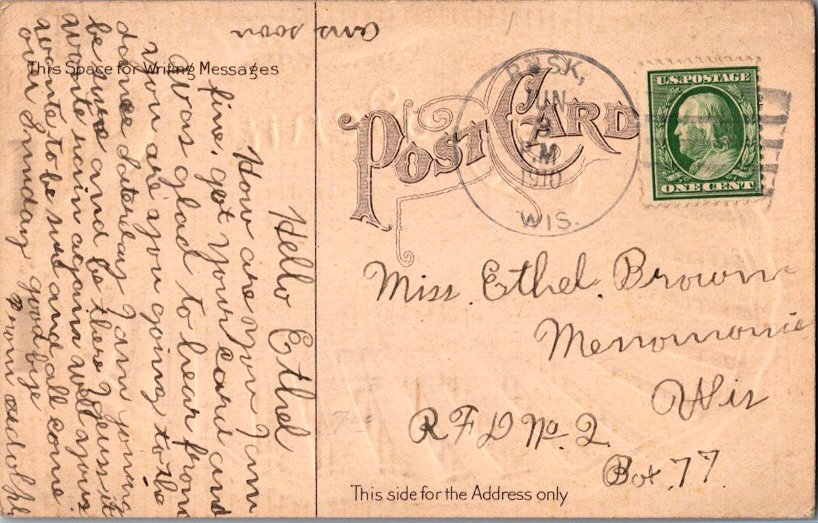 This Space for Writing Messages
POST CARD
RUSK,
JUN
M
1910
WIS.
U.S. POSTAGE
ONE CENT
Miss. Ethel. Brown
Menomonie
Wis
R F D No. 2
Box. 77.
This side for the Address only
Hello Ethel
How are you I am
fine. got your card and
was glad to hear from
you are you going to the
dance Saterday I am
be sure and be there I
wont rain again well
wonte to be and all come
over Sunday good bye
From
ans soon